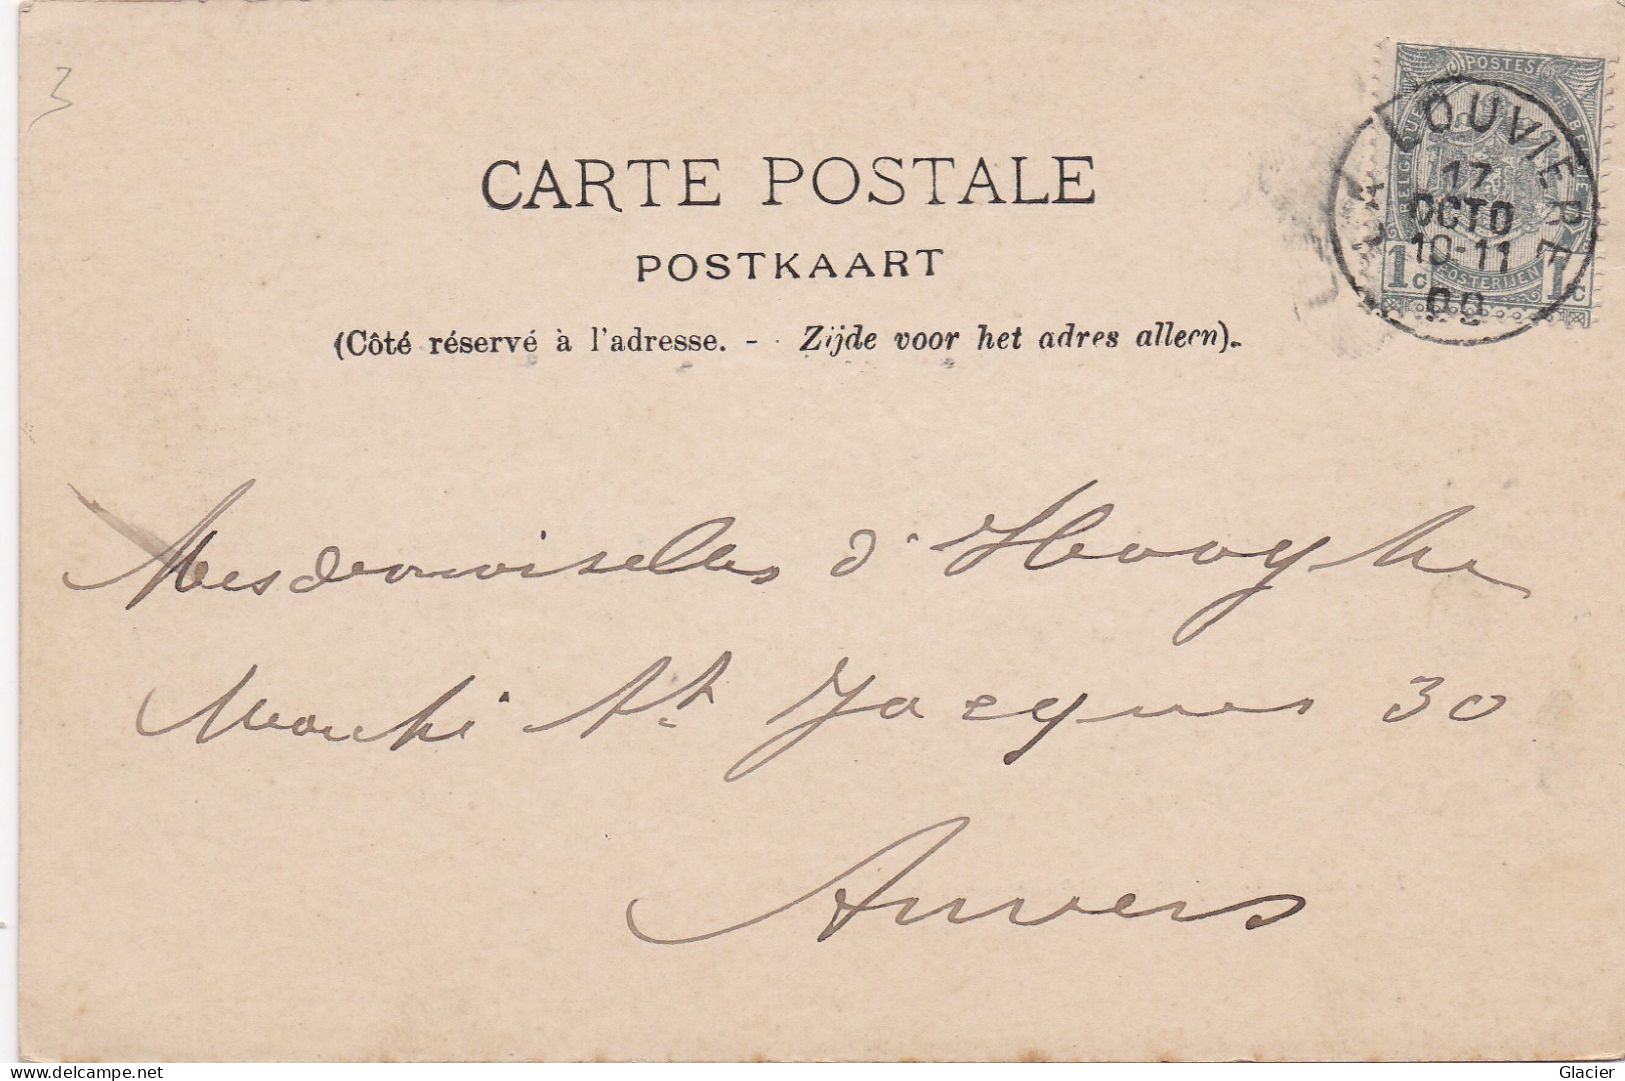 3
CARTE POSTALE
POSTKAART
(Côté réservé à l'adresse. - Zijde voor het adres alleen).
POSTES
BELGIQUE BELGIË
1c POSTERIJEN 1c
LA LOUVIERE
17
OCTO
10-11
99
Mesdemoiselles d'Hooghe
Marché St Jacques 30
Anvers
© Glacier